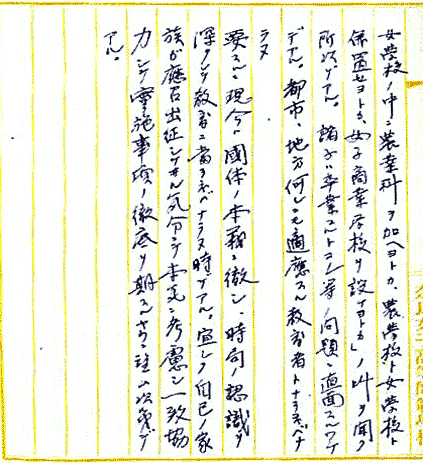 女学校ノ中ニ農業科ヲ加ヘヨトカ、農学校ト女学校ト
併置セヨトカ、女子商業学校ヲ設ケヨトカノ叫ヲ聞ク
所以デアル。諸子ハ卒業スルトコレ等ノ問題ニ直面スルワケ
デアル。都市、地方何レニモ適應スル教育者トナラネバナ
ラヌ
要スルニ現今ハ國体ノ本義ニ徹シ、時局ノ認識ヲ
深クシテ教育ニ当ラネバナラヌ時デアル。宜シク自己ノ家
族ガ應召出征シテヰル気分デ本気ニ考慮シ一致協
力シテ實施事項ノ徹底ヲ期スルヤウ望ム次第デ
アル。